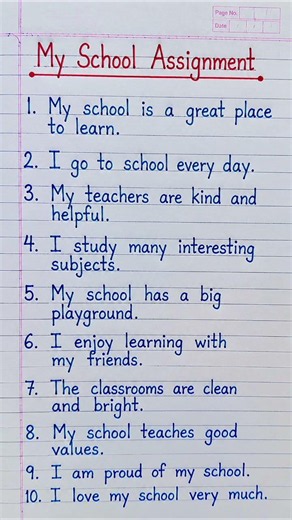 Page No.
Date
My School Assignment
1. My school is a great place
to learn.
2. I go to school every day.
3. My teachers are kind and
helpful.
4. I study many interesting
subjects.
5. My school has a big
playground.
6. I enjoy learning with
my friends.
7. The classrooms are clean
and bright.
8. My school teaches good
values.
9. I am proud of my school.
10. I love my school very much.